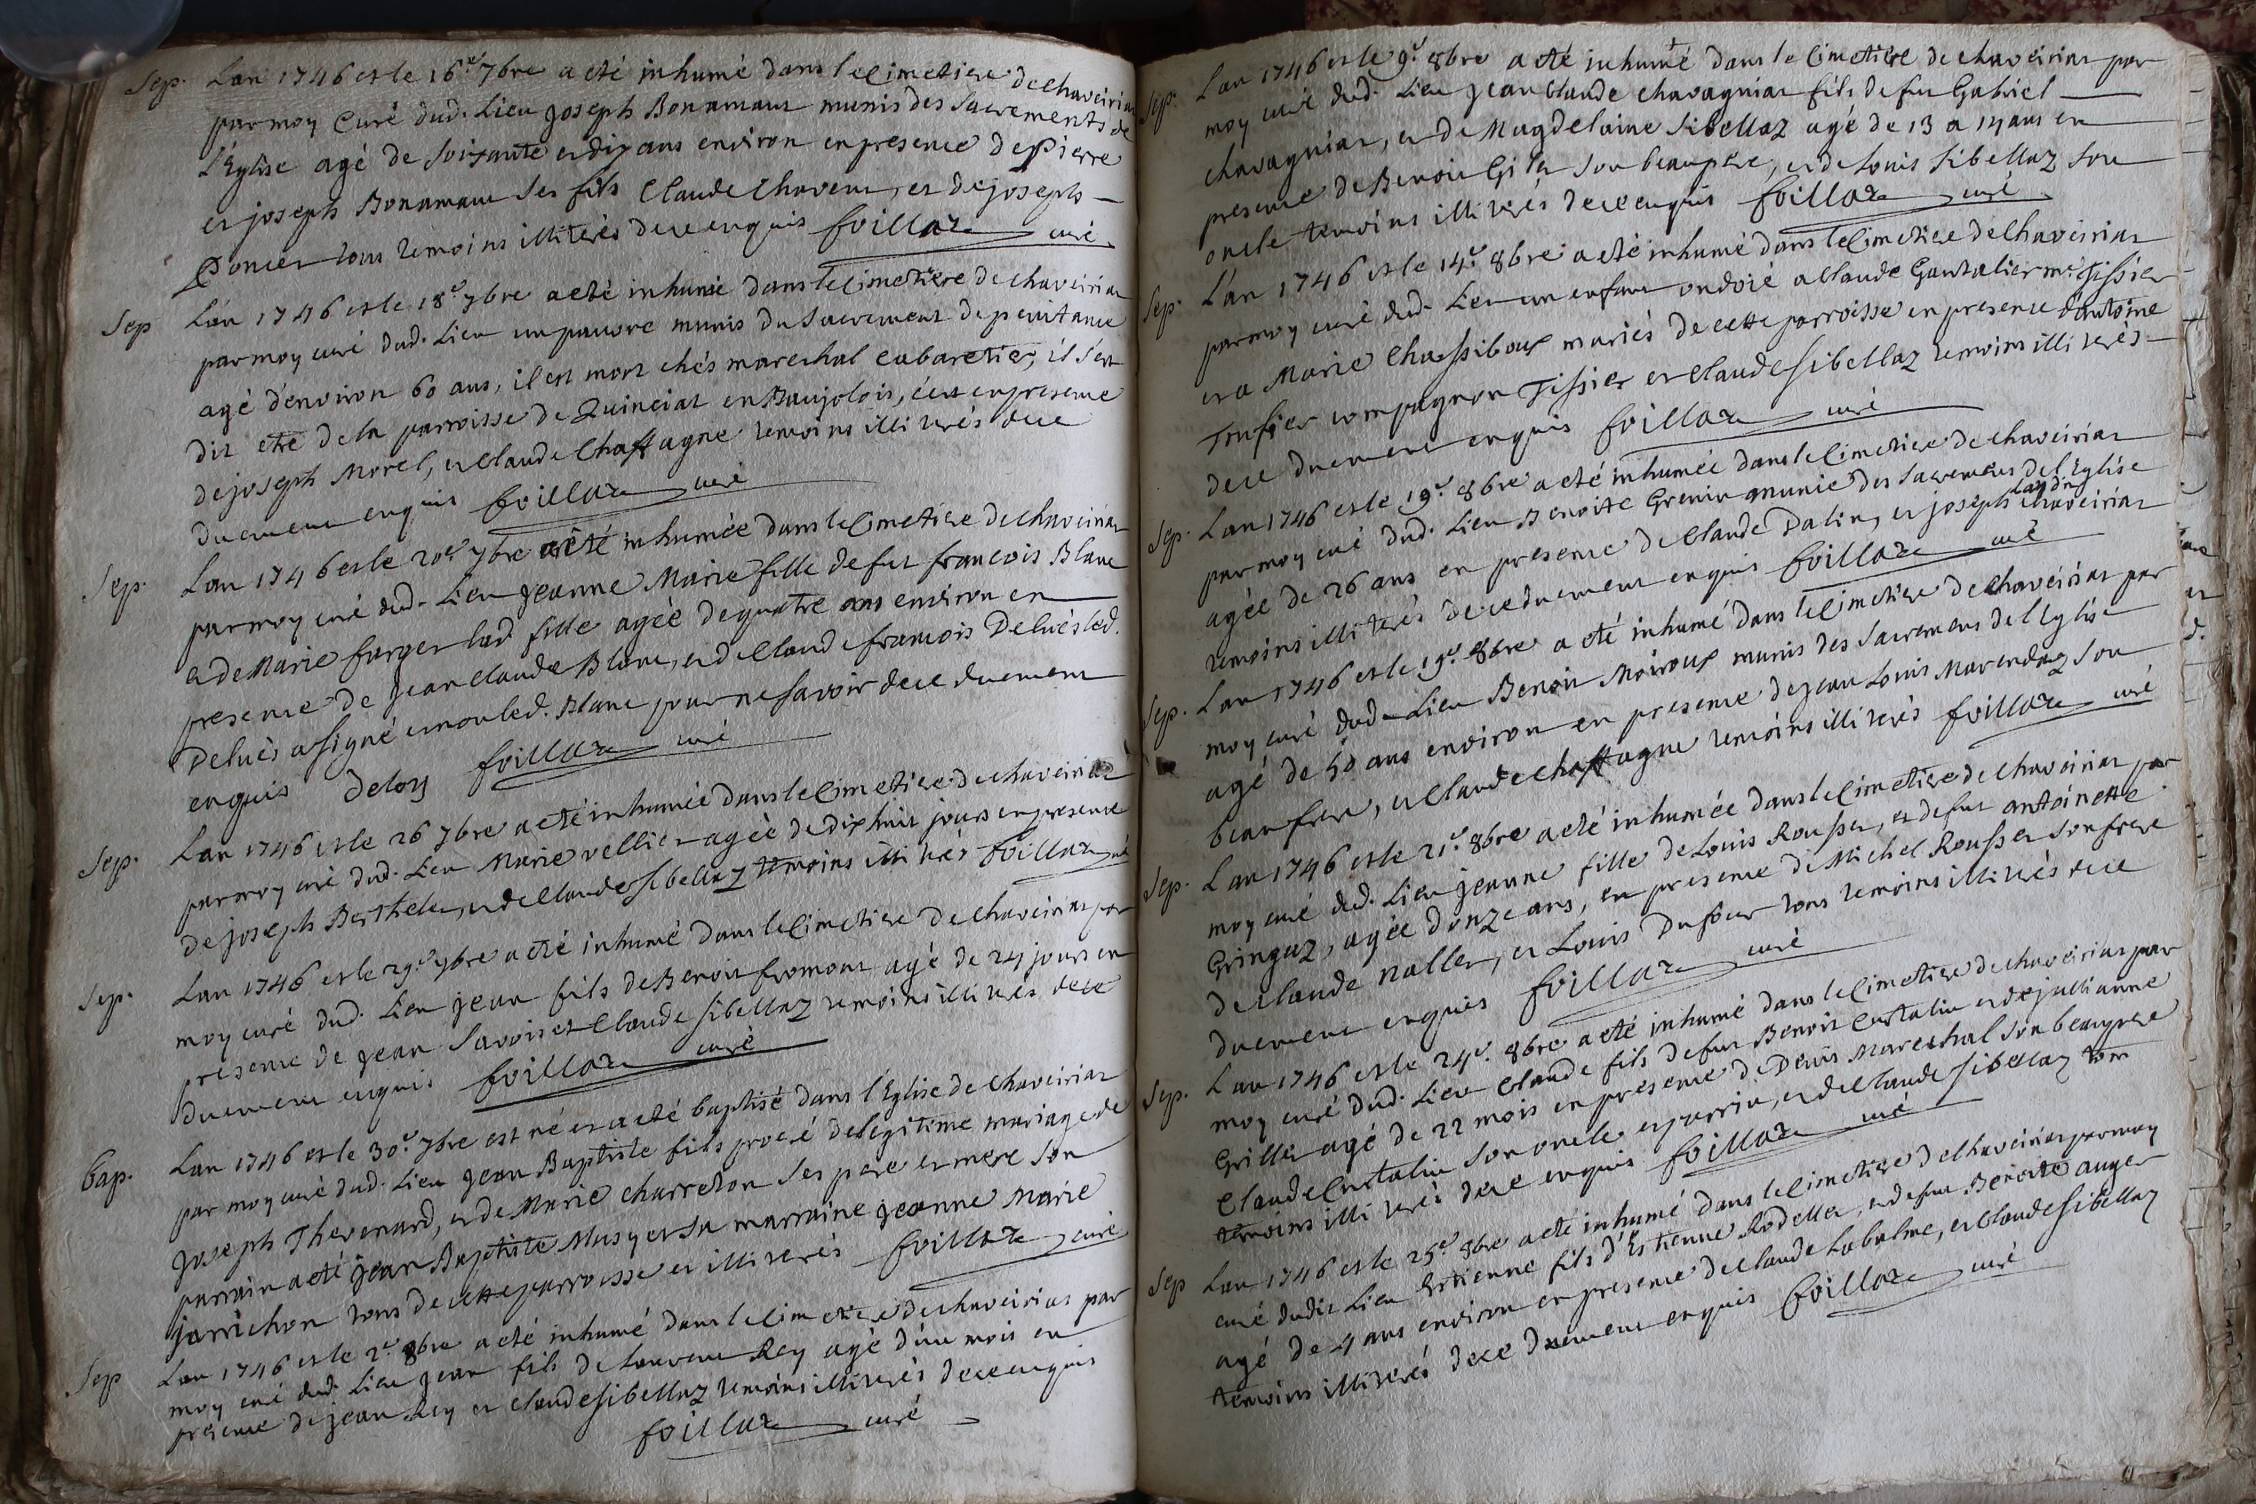 Sep. Lan 1746 et le 16e 7bre a eté inhumé dans le Cimetiere de chaveiriat
par moy Curé dud. Lieu joseph Bonamour munis des Sacrements de
l'Eglise agé de soixante et dix ans environ en presence de pierre
et joseph Bonamour ses fils Claude Chaveur, et de joseph
Poncet tous temoins illiterés de ce enquis foillaz curé
Sep Lan 1746 et le 18e 7bre a eté inhumé dans le Cimetiere de chaveiriat
par moy curé dud. Lieu un pauvre munis du Sacrement de penitance
agé d'environ 60 ans, il est mort chés marechal Cabaretier, il s'est
dit etre de la parroisse de Quinciat en Baujolois, c'est en presence
de joseph Morel, et Claude Chaffagne temoins illiterés de ce
duement enquis foillaz curé
Sep. Lan 1746 et le 20e 7bre a eté inhumée dans le Cimetiere de chaveiriat
par moy curé dud. Lieu jeanne Marie fille de fut francois Blanc
et de Marie farger lad. fille agée de quatre ans environ en
presence de jean claude Blanc, et de Claude francois Deluès led.
Deluès a signé et non led. Blanc pour ne savoir de ce duement
enquis Deloy foillaz curé
Sep. Lan 1746 et le 26 7bre a eté inhumée dans le Cimetiere de chaveiriat
par moy curé dud. Lieu Marie vellier agée de dix huit jours en presence
de joseph Berthelet, et de Claude sibellaz temoins illiterés foillaz curé
Sep. Lan 1746 et le 29e 7bre a eté inhumé dans le Cimetiere de chaveiriat par
moy curé dud. Lieu jean fils de Benoit fromont agé de 24 jours en
presence de jean Savoiset Claude sibellaz temoins illiterés de ce
duement enquis foillaz curé
bap. Lan 1746 et le 30e 7bre est né et a eté baptisé dans l'Eglise de chaveiriat
par moy curé dud. Lieu jean Baptiste fils procré de legitime mariage de
joseph Thevenard, et de Marie charreton ses pere et mere son
parrain a eté jean Baptiste Musy et sa marraine jeanne Marie
jarrichon tous de cette parroisse et illiterés foillaz curé
Sep Lan 1746 et le 2e 8bre a eté inhumé dans le Cimetiere de chaveiriat par
moy curé dud. Lieu jean fils de Laurent Rey agé d'un mois en
presence de jean Rey et claude sibellaz temoins illiterés de ce enquis
foillaz curé
Sep. Lan 1746 et le 9e 8bre a eté inhumé dans le Cimetiere de chaveiriat par
moy curé dud. Lieu jean Claude chavagniat fils de fut Gabriel
chavagniat, et de Magdelaine sibellaz agé de 13 a 14 ans en
presence de Benoit son beaupere, et de Louis sibellaz son
oncle temoins illiterés de ce enquis foillaz curé
Sep. L'an 1746 et le 14e 8bre a eté inhumé dans le Cimetiere de chaveiriat
par moy curé dud. Lieu un enfant ondoié a Claude Gontalier mr Tissier
et a Marie Chassiboux mariés de cette parroisse en presence d'antoine
Trufier compagnon Tissier et Claude sibellaz temoins illiterés
de ce duement enquis foillaz curé
Sep. Lan 1746 et le 19e 8bre a eté inhumée dans le Cimetiere de chaveiriat
par moy curé dud. Lieu Benoite Grenier munie des Sacremens de l'Eglise
agée de 26 ans en presence de Claude Dalin, et joseph chaveiriat
temoins illiterés de ce duement enquis foillaz curé
Sep. Lan 1746 et le 19e 8bre a eté inhumé dans le Cimetiere de chaveiriat par
moy curé dud. Lieu Benoit Moiroux munis des Sacremens de l'Eglise
agé de 50 ans environ en presence de jean Louis Marendaz son
beaufrere, et Claude Chaffagne temoins illiterés foillaz curé
Sep. Lan 1746 et le 21e 8bre a eté inhumée dans le Cimetiere de chaveiriat par
moy curé dud. Lieu jeanne fille de Louis Rousset, et de fut antoinette
Gringaz, agée d'onze ans, en presence de Michel Rousset son frere
de claude nallet, et Louis Dufour tous temoins illiterés de ce
duement enquis foillaz curé
Sep. Lan 1746 et le 24e 8bre a eté inhumé dans le Cimetiere de chaveiriat par
moy curé dud. Lieu Claude fils de fut Benoit Custalin et de jullianne
Grillet agé de 22 mois en presence de Denis Marechal son beaupere
Claude Custalin son oncle et parrin, et de Claude sibellaz tous
temoins illiterés de ce enquis foillaz curé
Sep Lan 1746 et le 25e 8bre a eté inhumé dans le Cimetiere de chaveiriat par moy
curé dudit Lieu Estienne fils d'Estienne Rodellet, et de fut Benoite auger
agé de 4 ans environ en presence de Claude Labalme, et Claude sibellaz
temoins illiterés de ce duement enquis foillaz curé